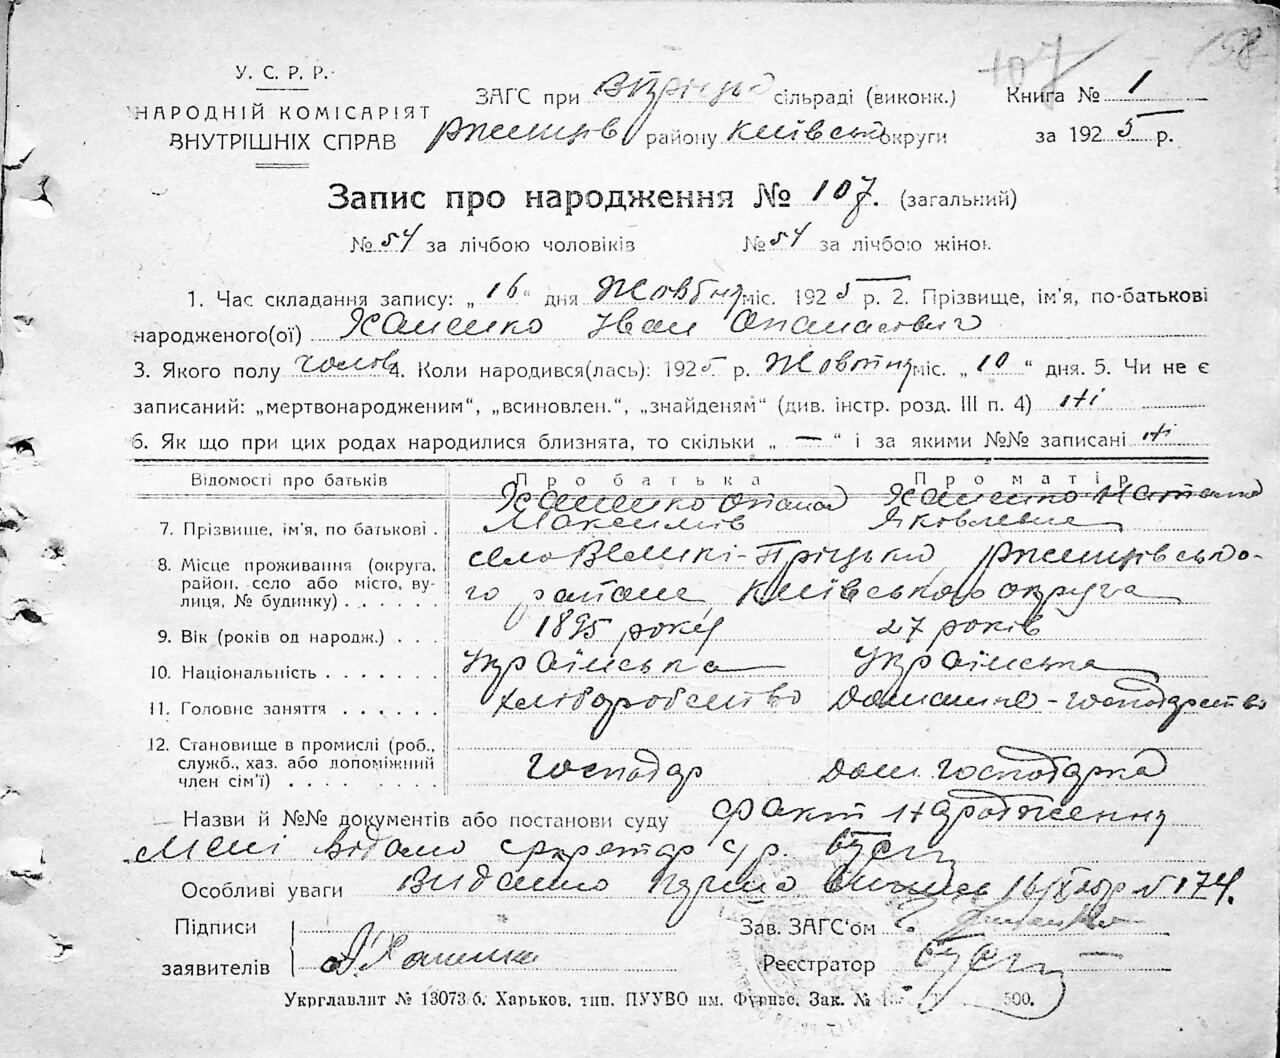 107 158
У. С. Р. Р.
НАРОДНІЙ КОМІСАРІЯТ
ВНУТРІШНІХ СПРАВ
ЗАГС при сільраді (виконк.) Книга № 1
району Київської округи за 1925 р.
Запис про народження № 107. (загальний)
№ 54 за лічбою чоловіків № 54 за лічбою жінок
1. Час складання запису: „16“ дня Жовтня міс. 1925 р. 2. Прізвище, ім'я, по-батькові
народженого(ої) Ханенко Іван Опанасович
3. Якого полу чолов 4. Коли народився(лась): 1925 р. Жовтня міс. „10“ дня. 5. Чи не є
записаний: „мертвонародженим“, „всиновлен.“, „знайденям“ (див. інстр. розд. III п. 4) ні
6. Як що при цих родах народилися близнята, то скільки „—“ і за якими №№ записані ні
Відомості про батьків Про батька Про матір
Ханенко Опанас Ханенко Наталия
7. Прізвище, ім'я, по батькові . Максимів Яковлевна
8. Місце проживання (округа, село Великі-Пріцьки, Ржищівсько-
район, село або місто, ву-
лиця, № будинку) . . . . . . го района Київського округа
9. Вік (років од народж.) . . . 1895 року 27 років
10. Національність . . . . . . . Українська Українська
11. Головне заняття . . . . . . хліборобство Домашнє-господарство
12. Становище в промислі (роб.,
служб., хаз. або допоміжний
член сім'ї) . . . . . . . . господар дом. господарка
Назви й №№ документів або постанови суду факт народження
мені відомо секретар с/р.
Особливі уваги Видано 16/X № 174.
Підписи Зав. ЗАГС'ом
заявителів Ханенко Реєстратор
Укрглавлит № 13073 б. Харьков, тип. ПУУВО им. Фрунзе, Зак. № 500.